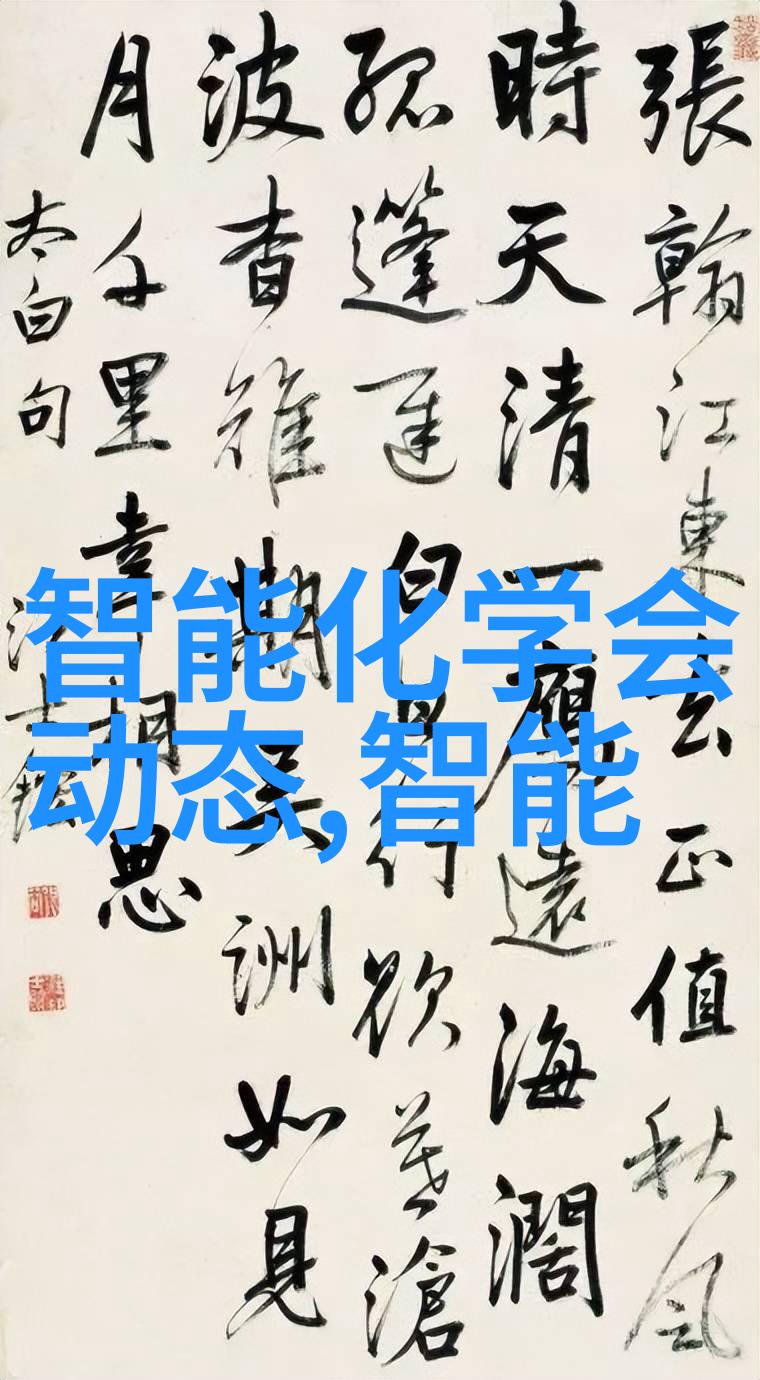 張翰江東去正值秋風
時天清一鴈遠海濶
孤篷遲白日行欲暮滄
波杳難期吳洲如見
月千里幸相思
太白句
汪士鋐
智能化学会
动态,智能